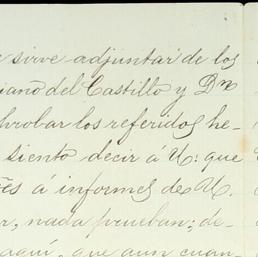 sirve adjuntar de los
del Castillo y Dn
probar los referidos he-
siento decir á U. que
á informes de U.
nada prueban; de-
aquí, que aun cuan-